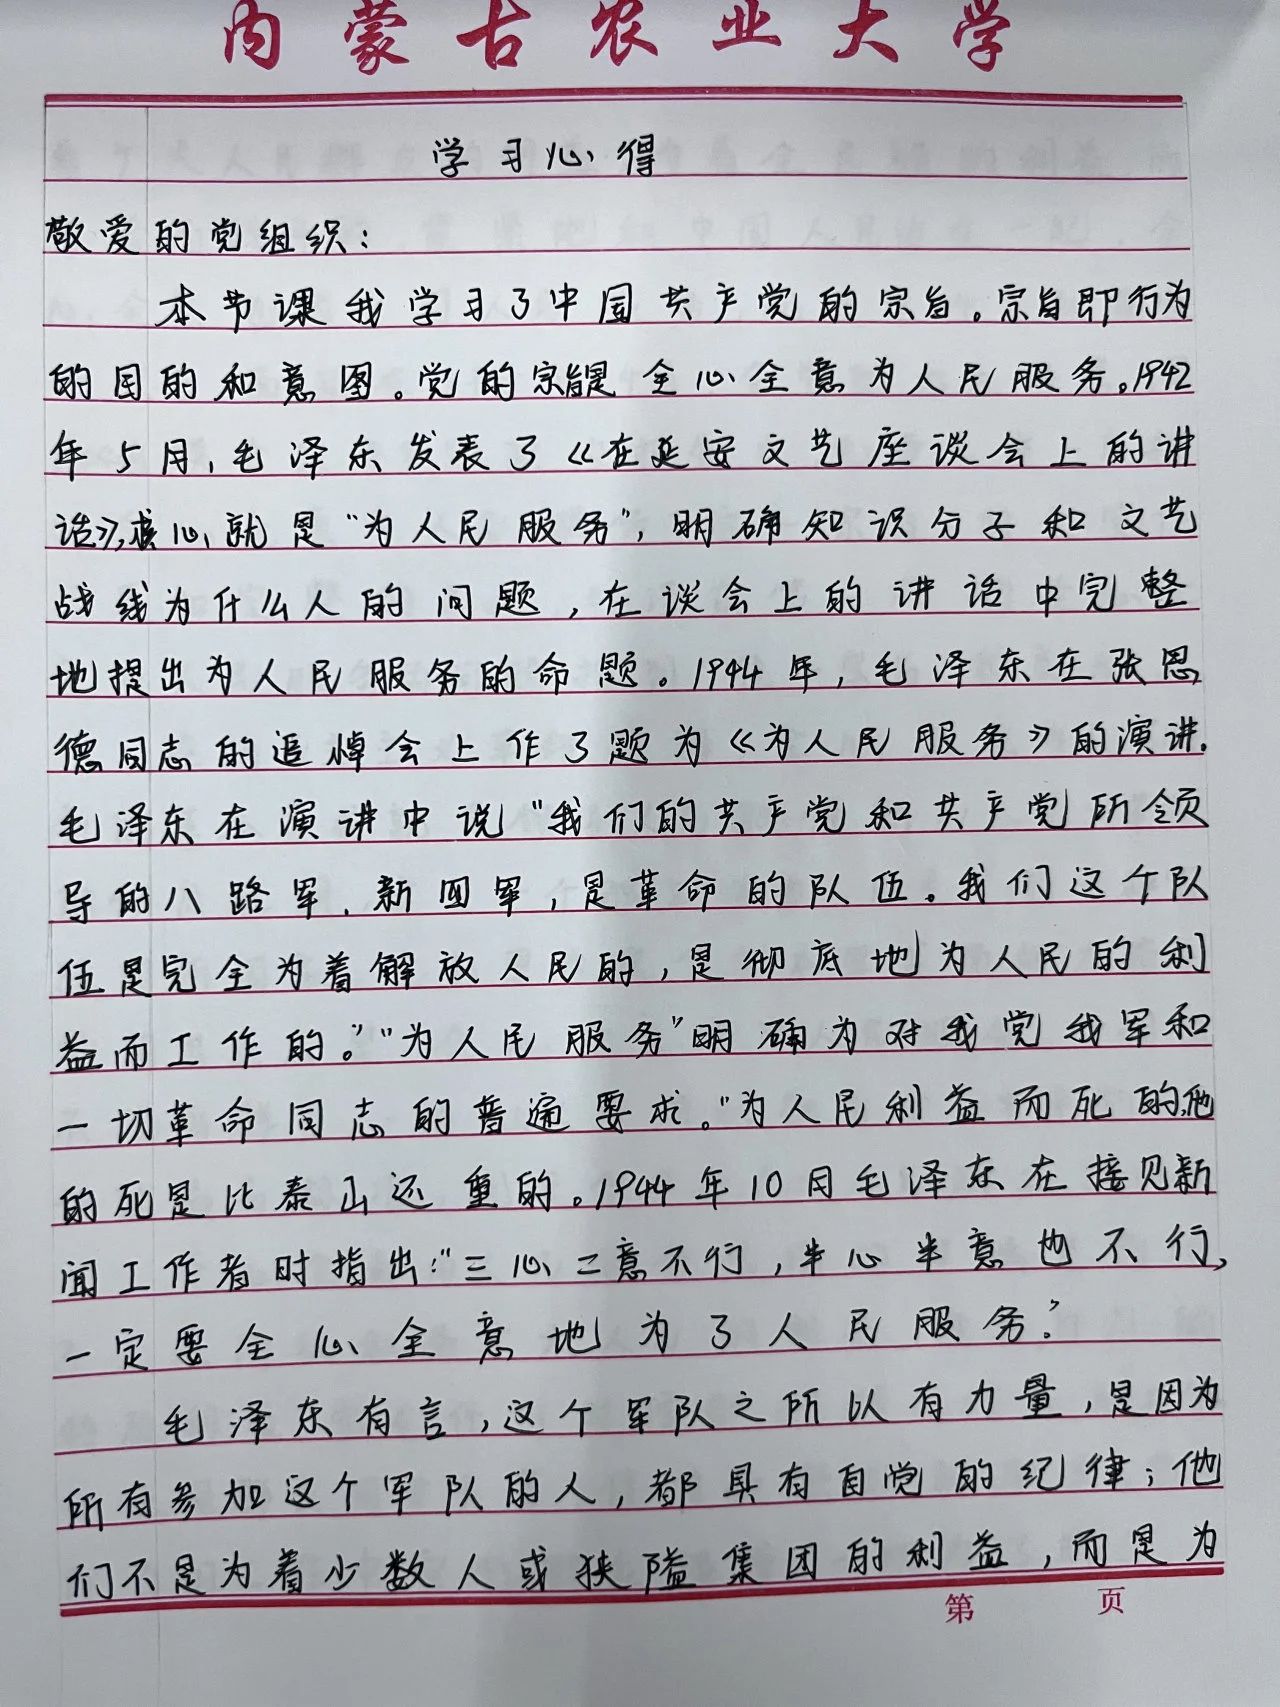 内蒙古农业大学
学习心得
敬爱的党组织：
本节课我学习了中国共产党的宗旨。宗旨即行为
的目的和意图。党的宗旨是全心全意为人民服务。1942
年5月，毛泽东发表了《在延安文艺座谈会上的讲
话》，核心就是“为人民服务”，明确知识分子和文艺
战线为什么人的问题，在谈会上的讲话中完整
地提出为人民服务的命题。1944年，毛泽东在张思
德同志的追悼会上作了题为《为人民服务》的演讲.
毛泽东在演讲中说“我们的共产党和共产党所领
导的八路军、新四军，是革命的队伍。我们这个队
伍是完全为着解放人民的，是彻底地为人民的利
益而工作的。”“为人民服务”明确为对我党我军和
一切革命同志的普遍要求。“为人民利益而死的，他
的死是比泰山还重的。1944年10月毛泽东在接见新
闻工作者时指出：“三心二意不行，半心半意也不行，
一定要全心全意地为了人民服务。”
毛泽东有言，这个军队之所以有力量，是因为
所有参加这个军队的人，都具有自觉的纪律；他
们不是为着少数人或狭隘集团的利益，而是为
第 页